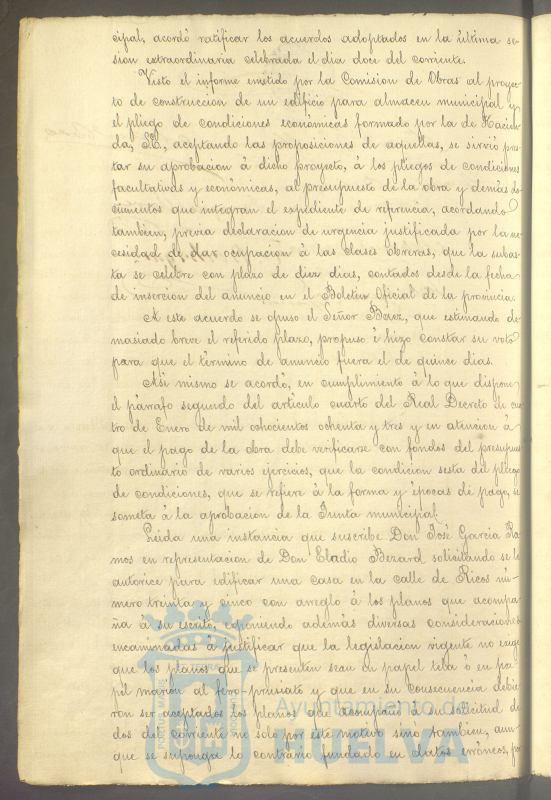 cipal, acordó ratificar los acuerdos adoptados en la última se-
sion extraordinaria celebrada el dia doce del corriente.
Visto el informe emitido por la Comision de Obras al proyec-
to de construccion de un edificio para almacen municipal y
el pliego de condiciones económicas formado por la de Hacien-
da, S.E., aceptando las proposiciones de aquellas, se sirvió pres-
tar su aprobacion á dicho proyecto, á los pliegos de condiciones
facultativas y económicas, al presupuesto de la obra y demás do-
cumentos que integran el expediente de referencia, acordando
tambien, previa declaracion de urgencia justificada por la ne-
cesidad de dar ocupacion á las clases obreras, que la subas-
ta se celebre con plazo de diez dias, contados desde la fecha
de insercion del anuncio en el Boletin Oficial de la provincia.
A este acuerdo se opuso el Señor Baez, que estimando de-
masiado breve el referido plazo, propuso é hizo constar su voto
para que el término de anuncio fuera el de quince dias.
Asi mismo se acordó, en cumplimiento á lo que dispone
el párrafo segundo del articulo cuarto del Real Decreto de cua-
tro de Enero de mil ochocientos ochenta y tres y en atencion á
que el pago de la obra debe verificarse con fondos del presupues-
to ordinario de varios ejercicios, que la condicion sesta del pliego
de condiciones, que se refiere á la forma y épocas de pago, se
someta á la aprobacion de la Junta municipal.
Leida una instancia que suscribe Don José Garcia Ra-
mos en representacion de Don Eladio Bezard solicitando se le
autorice para edificar una casa en la calle de Ricos nú-
mero treinta y cinco con arreglo á los planos que acompa-
ña á su escrito, exponiendo además diversas consideraciones
encaminadas á justificar que la legislacion vigente no exige
que los planos que se presenten sean en papel tela ó en pa-
pel marion al ferro-prusiato y que en su consecuencia debie-
ron ser aceptados los planos que acompañó á su solicitud de
dos del corriente no solo por este motivo sino tambien, aun-
que se suponga lo contrario fundado en datos erróneos, por
Ayuntamiento de
HUELVA